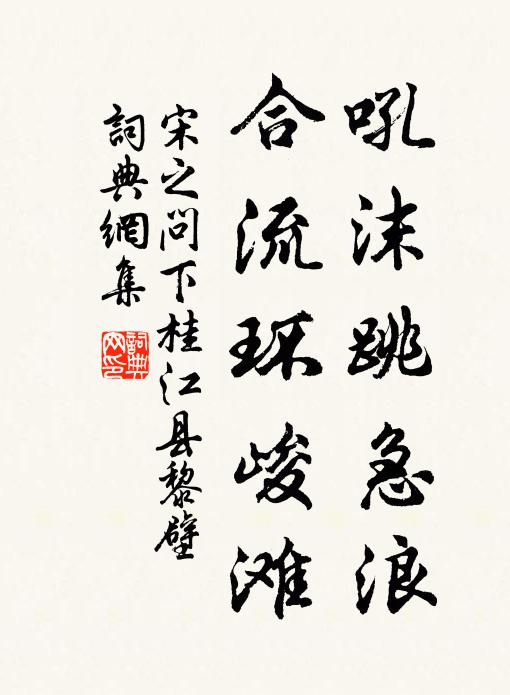 吼沫跳急浪
合流环峻滩
宋之问下桂江县黎壁
詞典網集
詞典網印